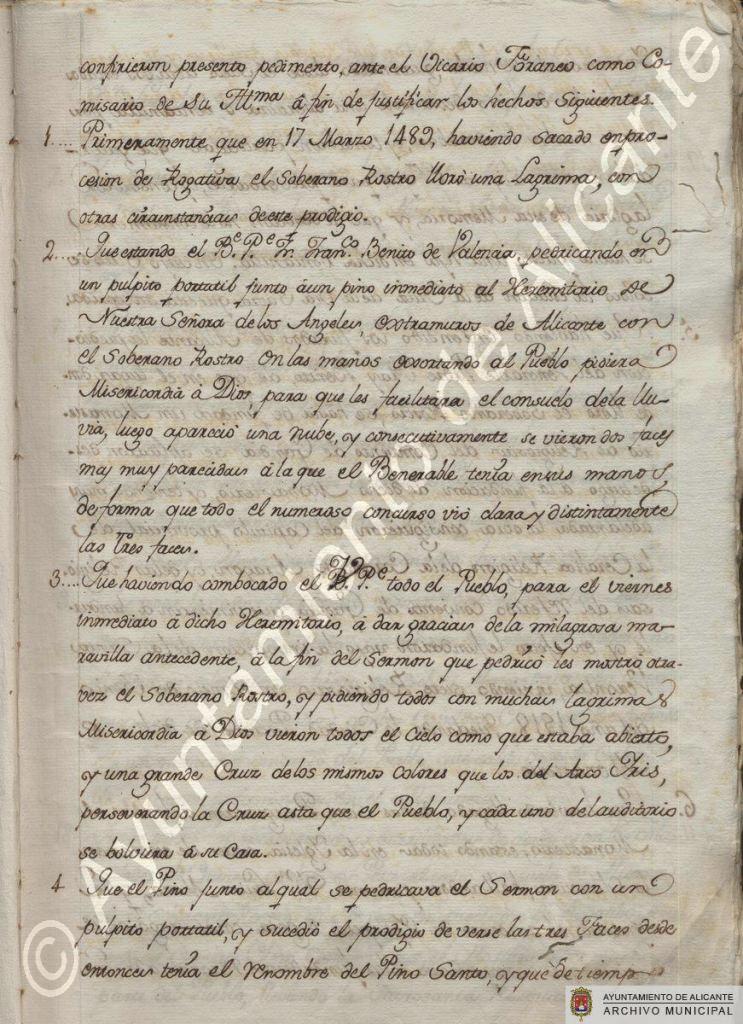 confirieron presento pedimento, ante el Vicario Foraneo como Co-
misario de Su Ill.ma â fin de justificar los hechos siguientes.
1.... Primeramente que en 17 Marzo 1489, haviendo sacado en pro-
cesion de Rogativa el Soberano Rostro lloró una Lagrima, con
otras circunstancias de este prodigio.
2.... Que estando el B.e P.e Fr. Fran.co Benito de Valencia, pedricando en
un pulpito portatil junto â un pino inmediato al Heremitorio de
Nuestra Señora de los Angeles, extramuros de Alicante con
el Soberano Rostro en las manos exortando al Pueblo pidiera
Misericordia â Dios, para que les facilitára el consuelo de la llu-
via, luego apareció una nube, y consecutivamente se vieron dos faces
mas muy parecidas â la que el Benerable tenia en sus manos,
de forma que todo el numeroso concurso vió clara y distintamente
las tres faces.
3.... Que haviendo combocado el P.e todo el Pueblo, para el viernes
inmediato â dicho Heremitorio, â dar gracias de la milagrosa ma-
ravilla antecedente, â la fin del Sermon que pedricó les mostró otra
vez el Soberano Rostro, y pidiendo todos con muchas lagrimas
Misericordia â Dios vieron todos el Cielo como que estaba abierto,
y una grande Cruz de los mismos colores que los del Arco Iris,
perseverando la Cruz asta que el Pueblo, y cada uno del auditorio
se bolviera â su Casa.
4 Que el Pino junto al qual se pedricava el Sermon con un
pulpito portatil, y sucedió el prodigio de verse las tres Faces desde
entonces tenia el renombre del Pino Santo, y que de tiempo
© Ayuntamiento de Alicante
AYUNTAMIENTO DE ALICANTE
ARCHIVO MUNICIPAL